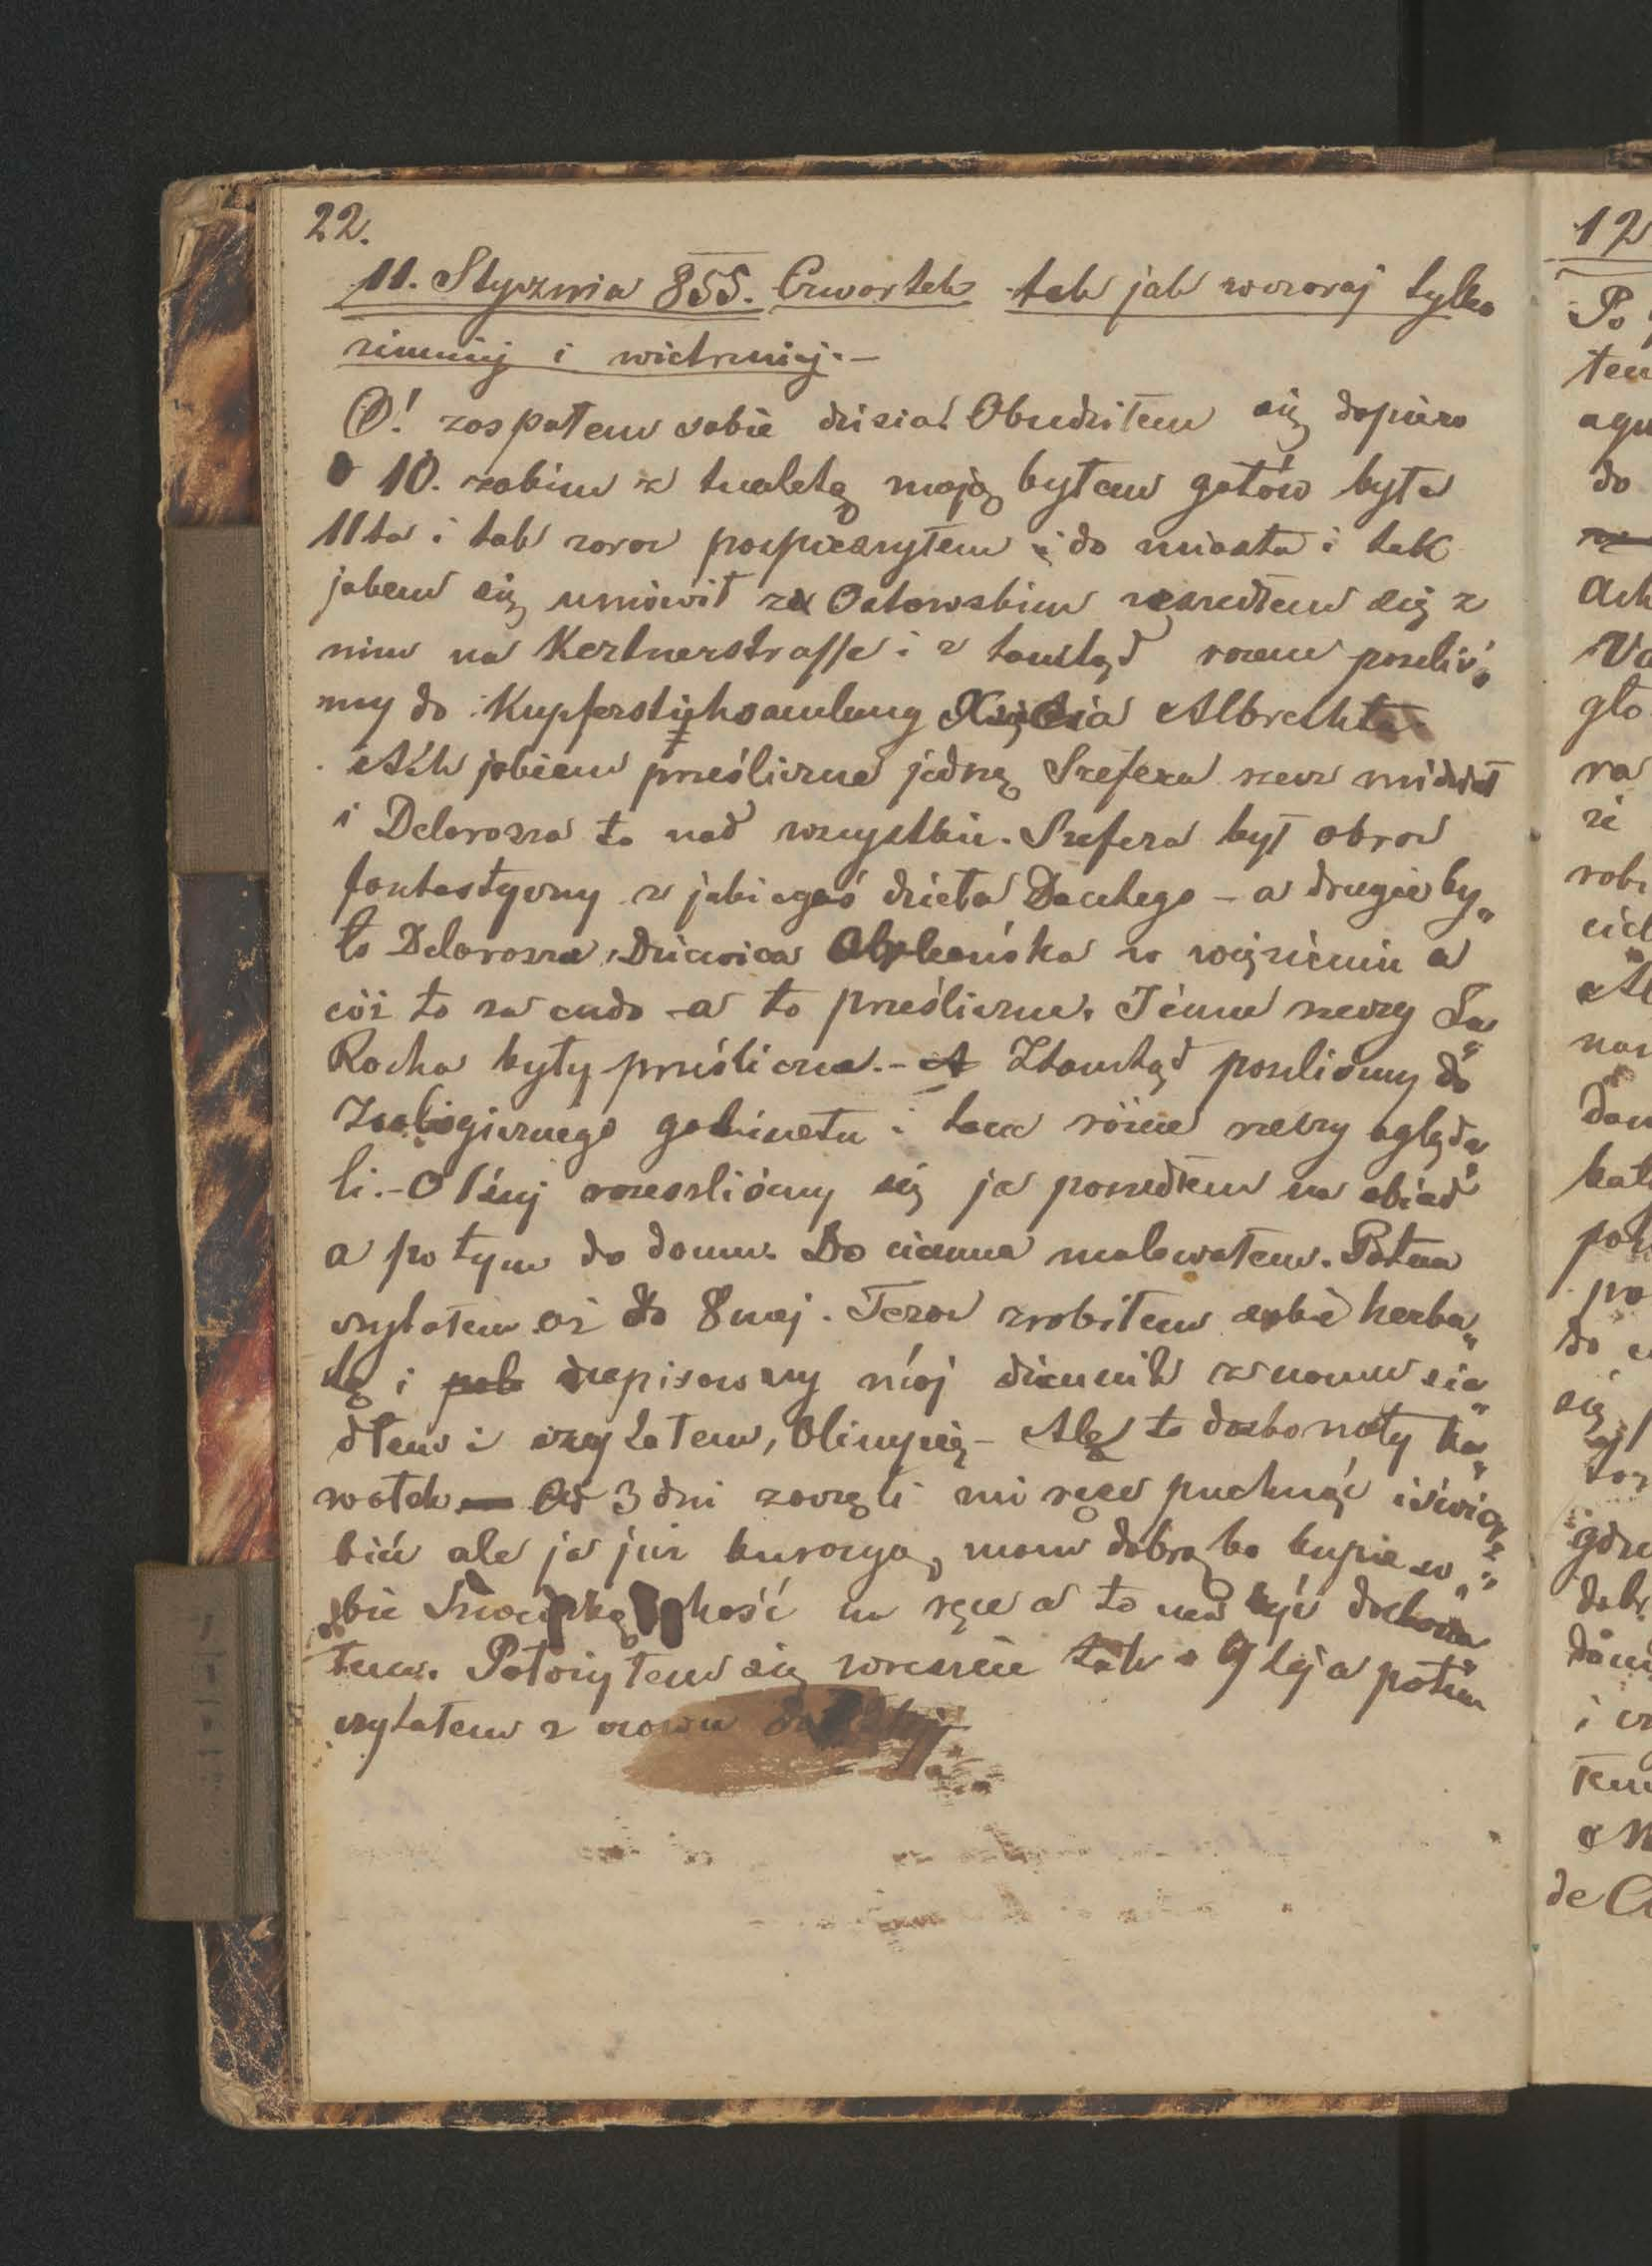 22.
11. Stycznia 855. Czwartek tak jak wczoraj tylko
zimniej i wietrzniej. —
O! zaspałem sobie dzisia! Obudziłem się dopiero
o 10. zakim z tualetą moją byłem gotów była
11ta i tak zaraz pospieszyłem i do miasta i tak
jakem się umówił z Ostowskim zeszedłem się z
nim na Kertnerstrasse i z tamtąd razem poszliś„
my do Kupferstichsamlung Xięcia Albrechta
Ach jakiem prześliczne jedną Szefera rzecz widział
i Delarosza to nad wszystkie. Szefera był obraz
fantastyczny z jakiegoś dzieła Dantego – a drugie by„
ło Delarosza, Dziewica Orleańska w więzieniu a
cóż to za cudo – a to prześliczne. Inne rzeczy La„
Rocha były prześliczne. – A Ztamtąd poszliśmy do
Zoologicznego gabinetu i tam różne rzeczy ogląda„
li. – O 1szej rozeszliśmy się ja poszedłem na obiad
a po tym do domu. Do ciemna malowałem. Potem
czytałem aż do 8mej. Teraz zrobiłem sobie herba„
tę i zapisawszy mój dziennik znowu sia„
dłem i czytałem, Olimpię – Ale to doskonały ka„
wałek — Od 3 dni zaczęli mi ręce puchnąć i świerz„
bić ale ja już kuracyą mam dobrą bo kupię so„
bie maść na ręce a to ma być doskona„
łem. Położyłem się wreszcie tak o 9tej a potem
czytałem znowu do
12
Po
tem
do
ach
Va
gło
ra
że
robi
nam
po
do
się
i cz
de